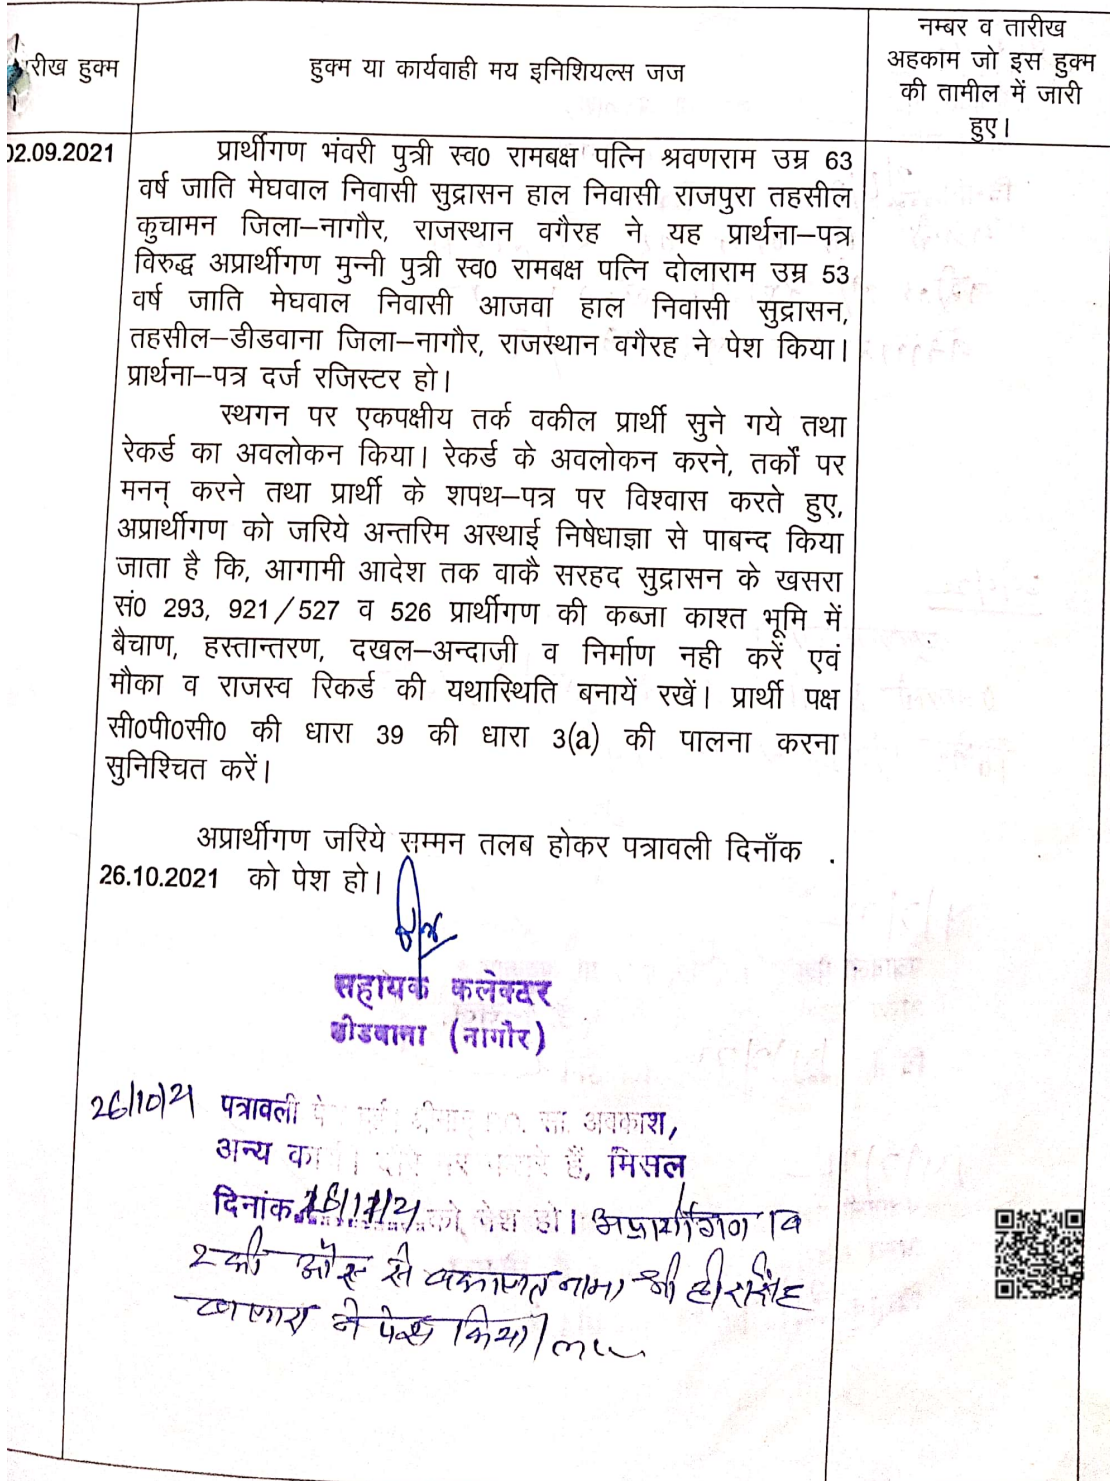 रीख हुक्म
हुक्म या कार्यवाही मय इनिशियल्स जज
नम्बर व तारीख
अहकाम जो इस हुक्म
की तामील में जारी
हुए।
02.09.2021
प्रार्थीगण भंवरी पुत्री स्व0 रामबक्ष पत्नि श्रवणराम उम्र 63
वर्ष जाति मेघवाल निवासी सुद्रासन हाल निवासी राजपुरा तहसील
कुचामन जिला–नागौर, राजस्थान वगैरह ने यह प्रार्थना–पत्र
विरुद्ध अप्रार्थीगण मुन्नी पुत्री स्व0 रामबक्ष पत्नि दोलाराम उम्र 53
वर्ष जाति मेघवाल निवासी आजवा हाल निवासी सुद्रासन,
तहसील–डीडवाना जिला–नागौर, राजस्थान वगैरह ने पेश किया।
प्रार्थना–पत्र दर्ज रजिस्टर हो।
स्थगन पर एकपक्षीय तर्क वकील प्रार्थी सुने गये तथा
रेकर्ड का अवलोकन किया। रेकर्ड के अवलोकन करने, तर्कों पर
मनन् करने तथा प्रार्थी के शपथ–पत्र पर विश्वास करते हुए,
अप्रार्थीगण को जरिये अन्तरिम अस्थाई निषेधाज्ञा से पाबन्द किया
जाता है कि, आगामी आदेश तक वाकै सरहद सुद्रासन के खसरा
सं0 293, 921/527 व 526 प्रार्थीगण की कब्जा काश्त भूमि में
बैचाण, हस्तान्तरण, दखल–अन्दाजी व निर्माण नही करें एवं
मौका व राजस्व रिकर्ड की यथास्थिति बनायें रखें। प्रार्थी पक्ष
सी0पी0सी0 की धारा 39 की धारा 3(a) की पालना करना
सुनिश्चित करें।
अप्रार्थीगण जरिये सम्मन तलब होकर पत्रावली दिनाँक
26.10.2021 को पेश हो।
सहायक कलेक्टर
डीडवाना (नागौर)
26/10/21 पत्रावली अवकाश,
अन्य हैं, मिसल
दिनांक को पेश हो। अप्रार्थीगण
2 की ओर से वकालत नामा श्री हीरसिंह
ने पेश किया।